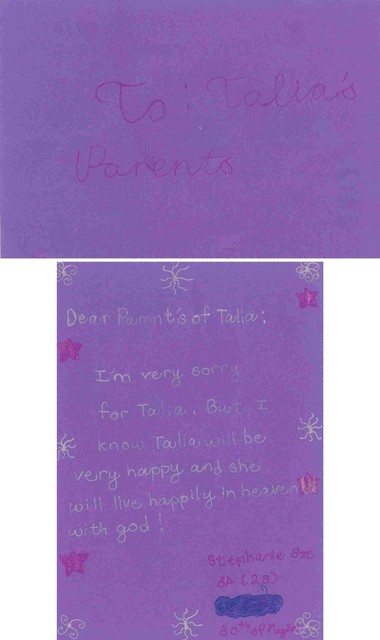 To: Talia's
Parents
Dear Parnt's of Talia;
I'm very sorry
for Talia. But, I
know Talia will be
very happy and she
will live happily in heaven
with god!
Stephanie
3A (28)
30th of May